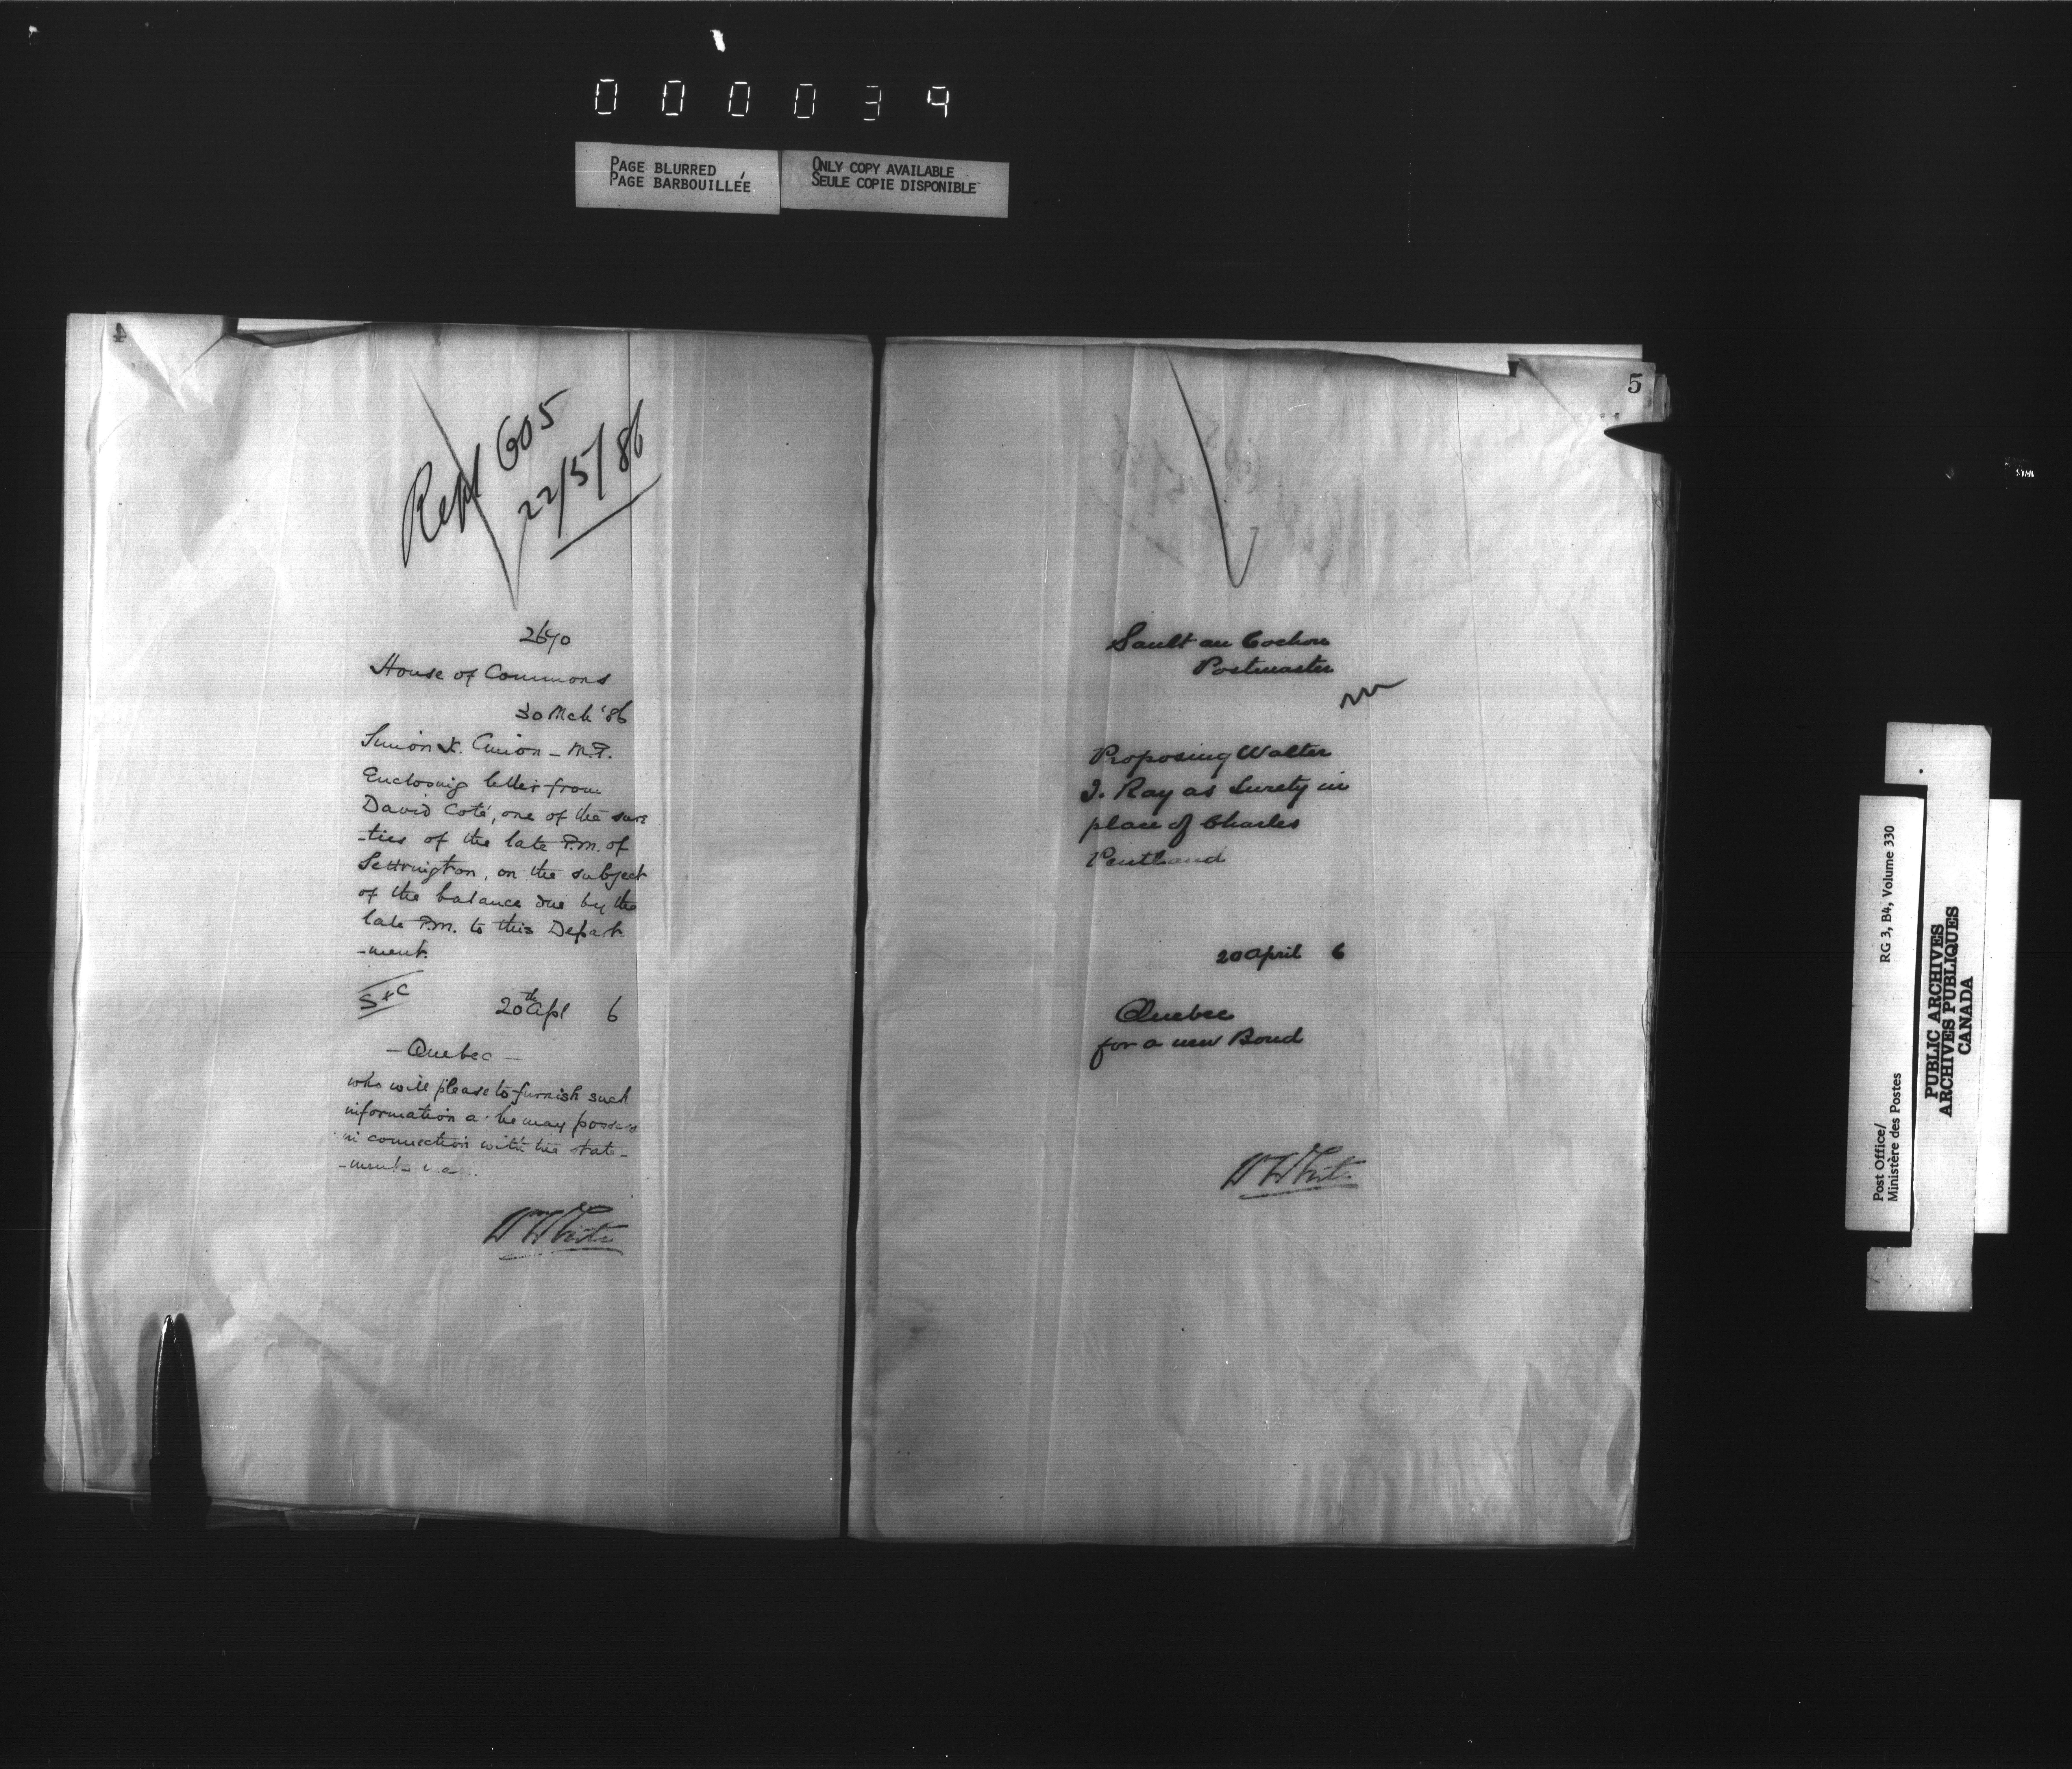 000039
PAGE BLURRED
PAGE BARBOUILLÉE
ONLY COPY AVAILABLE
SEULE COPIE DISPONIBLE
4
Rept 605
22/5/86
2690
House of Commons
30 Mch '86
Simon X. Cimon - M.P.
Enclosing letter from
David Coté, one of the sure
-ties of the late P.M. of
Settrington, on the subject
of the balance due by the
late P.M. to this Depart-
-ment.
20th Apl 6
- Quebec -
who will please to furnish such
information as he may possess
in connection with the state-
-ment
Wm White
5
Sault au Cochon
Postmaster
Proposing Walter
J. Ray as Surety in
place of Charles
Pentland
20 April 6
Quebec
for a new Bond
W White
Post Office/
Ministère des Postes
RG 3, B4, Volume 330
PUBLIC ARCHIVES
ARCHIVES PUBLIQUES
CANADA